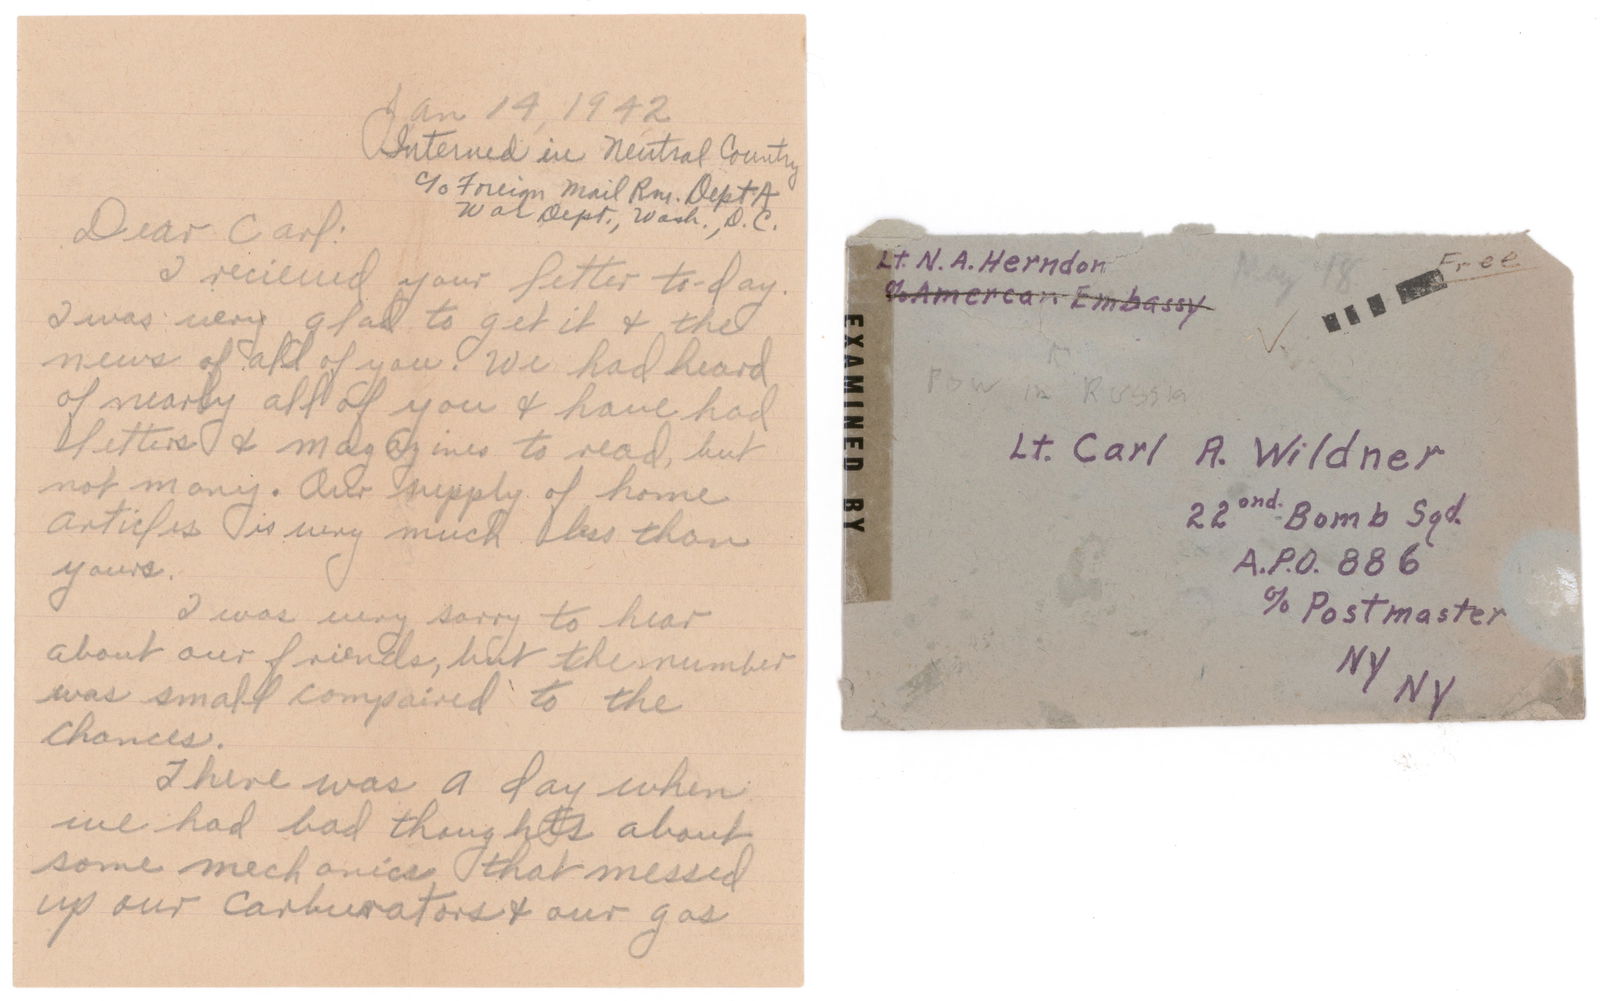 Jan 14, 1942
Interned in Neutral Country
c/o Foreign Mail Rm. Dept A
War Dept., Wash., D.C.
Dear Carl:
I recieved your letter to-day.
I was very glad to get it & the
news of all of you. We had heard
of nearly all of you & have had
letters & magazines to read, but
not many. Our supply of home
articles is very much less than
yours.
I was very sorry to hear
about our friends, but the number
was small compaired to the
chances.
There was a day when
we had bad thoughts about
some mechanics that messed
up our carburators & our gas
Lt. N. A. Herndon
c/o Amercan Embassy
May 18
Free
EXAMINED BY
POW in Russia
Lt. Carl A. Wildner
22ond. Bomb Sqd.
A.P.O. 886
c/o Postmaster
NY NY